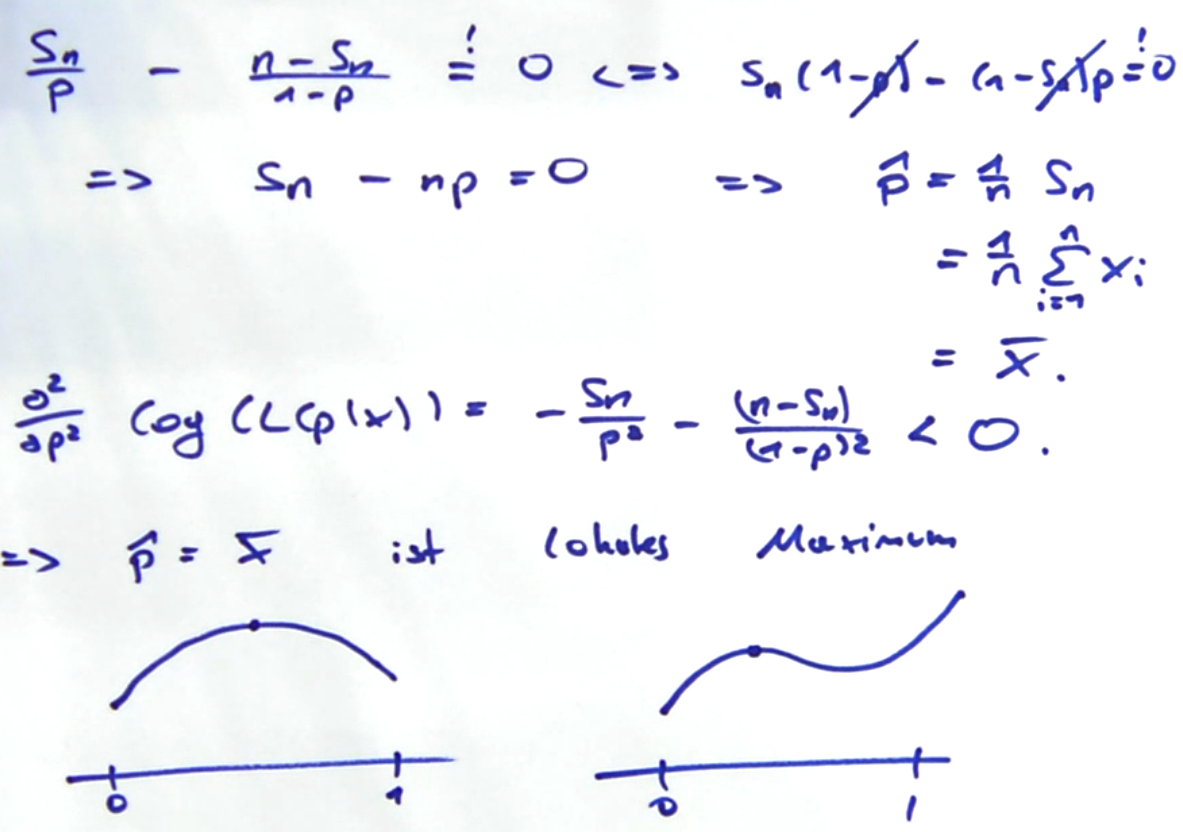 Sn/p - (n - Sn)/(1-p) =! 0 <=> Sn (1-p) - (n-Sn)p =! 0
=> Sn - np = 0 => p̂ = 1/n Sn
= 1/n Σ_{i=1}^{n} xi
= x̄.
∂²/∂p² log (L(p|x)) = - Sn/p² - (n-Sn)/(1-p)² < 0.
=> p̂ = x̄ ist lokales Maximum
0 1 0 1